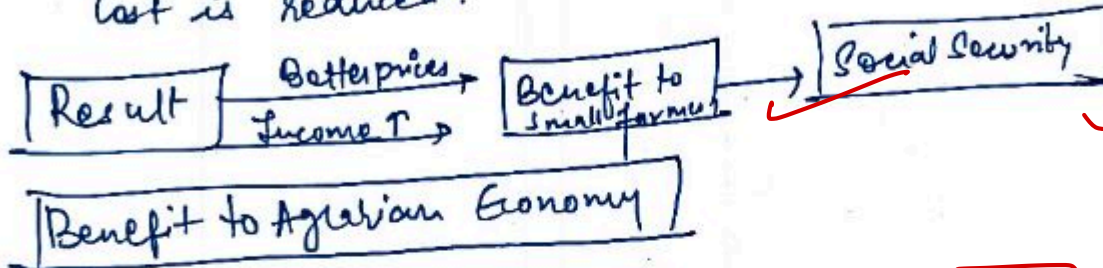 Cost is reduced.
Result
Better prices
Income ↑
Benefit to
small farmers
Social Security
Benefit to Agrarian Economy